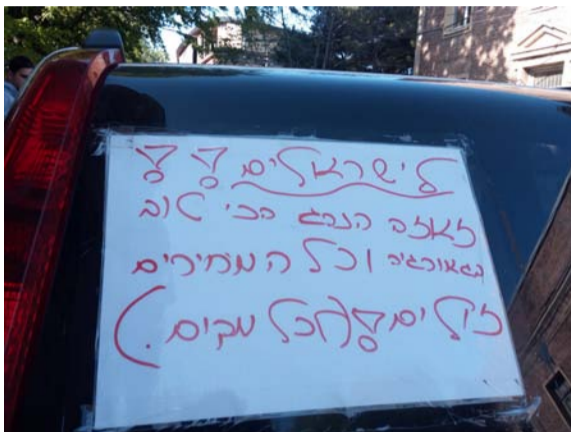 לישראלים!!
זאזה הנהג הכי טוב
בגאורגיה וכל המחירים
זולים! (לכל מקום.)